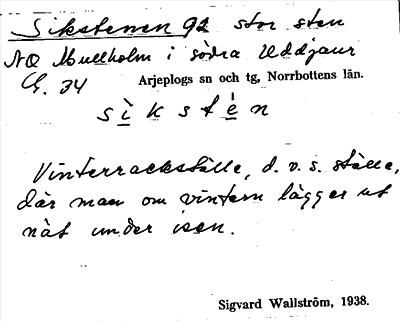 Sikstenen 92 stor sten
NO Mullholm i södra Uddjaur
G. 34 Arjeplogs sn och tg, Norrbottens län.
s i̲ k s t è̲ n
Vinterrackställe, d.v.s. ställe,
där man om vintern lägger ut
nät under isen.
Sigvard Wallström, 1938.